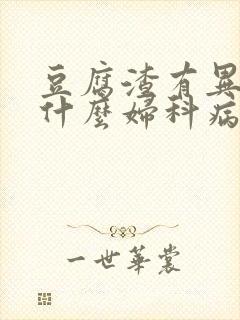 豆腐渣有異
什麼婦科病
一世華裳